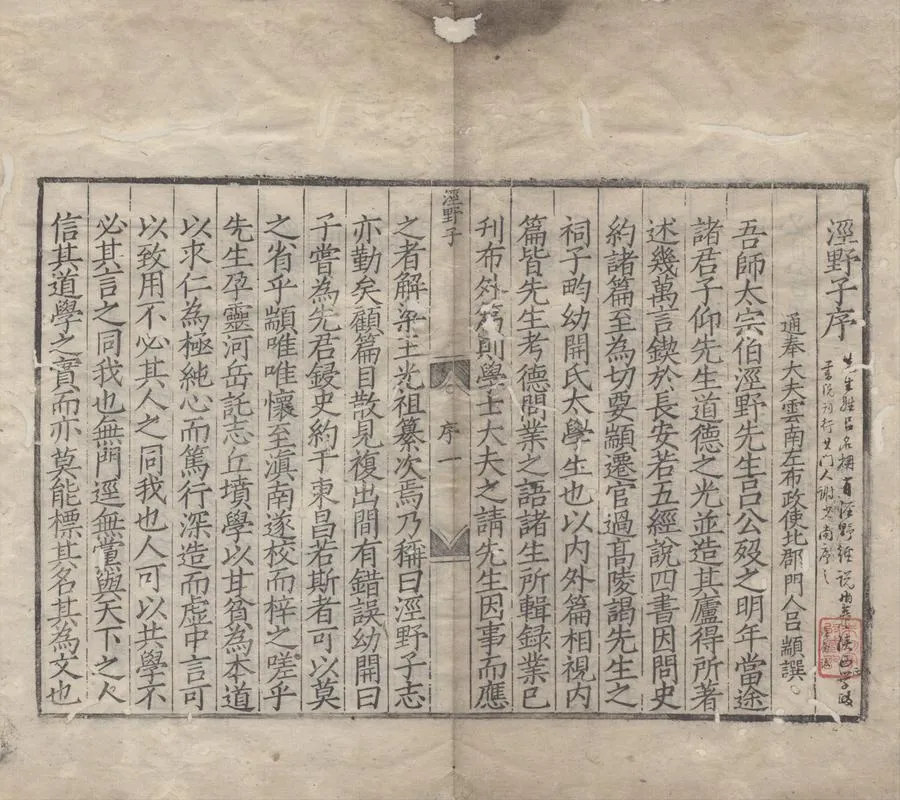 涇野子序
先生姓呂名柟有涇野經說
通奉大夫雲南左布政使北郡門人呂顓撰
吾師太宗伯涇野先生呂公歿之明年當途
諸君子仰先生道德之光並造其廬得所著
述幾萬言鍥於長安若五經說四書因問史
約諸篇至為切要顓遷官過高陵謁先生之
祠子畇幼開氏太學生也以內外篇相視內
篇皆先生考德問業之語諸生所輯錄業已
刋布外篇則學士大夫之請先生因事而應
涇野子
序
一
之者解梁王光祖纂次焉乃稱曰涇野子志
亦勤矣顧篇目散見複出間有錯誤幼開曰
子嘗為先君鋟史約于東昌若斯者可以莫
之省乎顓唯唯懷至滇南遂校而梓之嗟乎
先生孕靈河岳託志丘墳學以甘貧為本道
以求仁為極純心而篤行深造而虛中言可
以致用不必其人之同我也人可以共學不
必其言之同我也無門逕無黨與天下之人
信其道學之實而亦莫能標其名其為文也